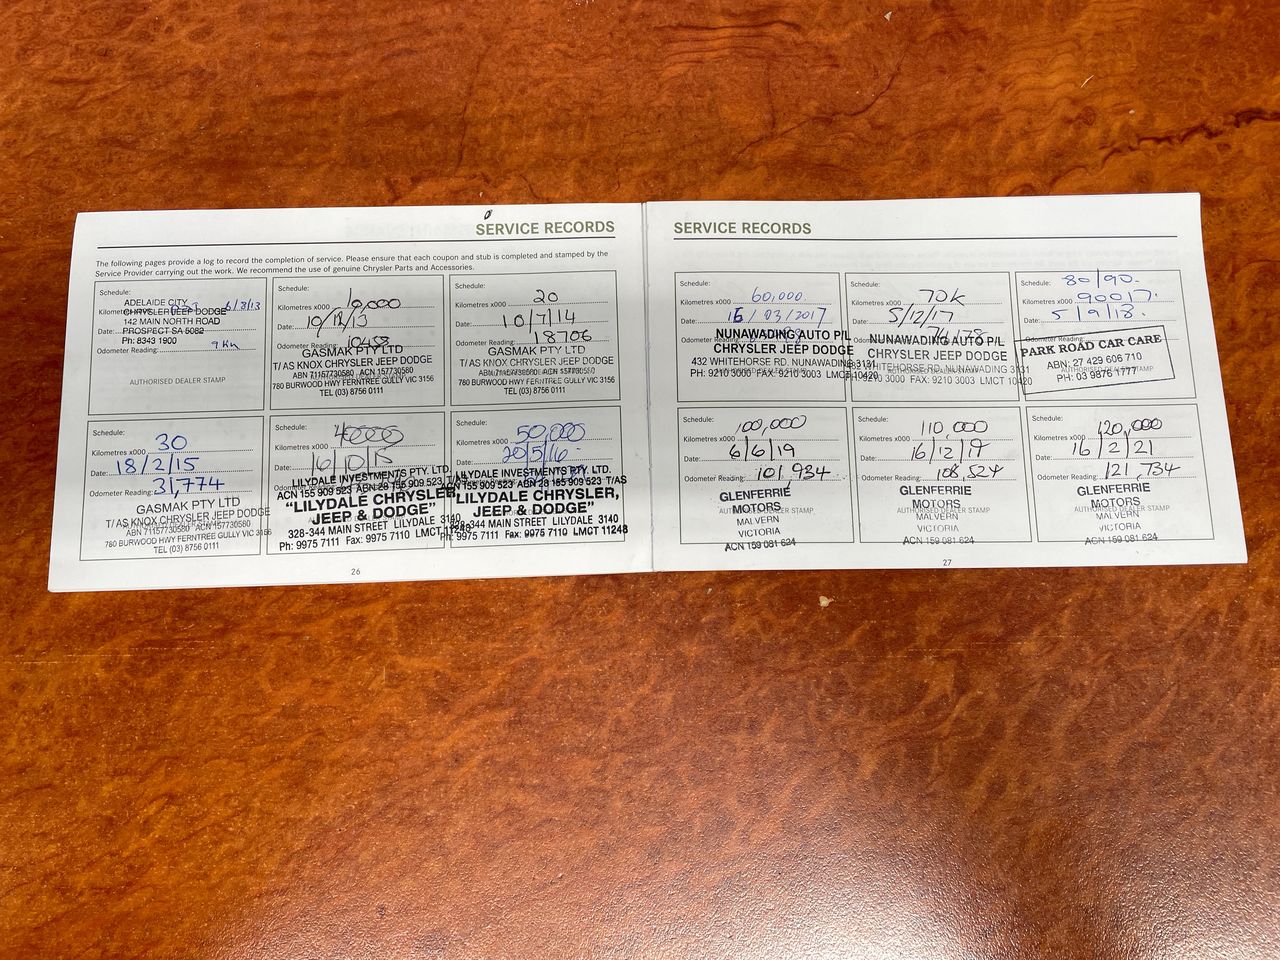 SERVICE RECORDS
The following pages provide a log to record the completion of service. Please ensure that each coupon and stub is completed and stamped by the
Service Provider carrying out the work. We recommend the use of genuine Chrysler Parts and Accessories.
Schedule:
ADELAIDE CITY
Kilometres x000 6/8/13
CHRYSLER JEEP DODGE
142 MAIN NORTH ROAD
Date:
PROSPECT SA 5082
Ph: 8343 1900
Odometer Reading: 9 km
AUTHORISED DEALER STAMP
Schedule:
Kilometres x000 10,000
Date: 10/12/13
Odometer Reading: 10458
GASMAK PTY LTD
T/AS KNOX CHRYSLER JEEP DODGE
ABN 71157730580 ACN 157730580
780 BURWOOD HWY FERNTREE GULLY VIC 3156
TEL (03) 8756 0111
Schedule:
Kilometres x000 20
Date: 10/7/14
Odometer Reading: 18706
GASMAK PTY LTD
T/ AS KNOX CHRYSLER JEEP DODGE
ABN 71157730580 ACN 157730580
780 BURWOOD HWY FERNTREE GULLY VIC 3156
TEL (03) 8756 0111
Schedule:
Kilometres x000 30
Date: 18/2/15
Odometer Reading: 31,774
GASMAK PTY LTD
T/ AS KNOX CHRYSLER JEEP DODGE
ABN 71157730580 ACN 157730580
780 BURWOOD HWY FERNTREE GULLY VIC 3156
TEL (03) 8756 0111
Schedule:
Kilometres x000 40000
Date: 16/10/15
LILYDALE INVESTMENTS PTY. LTD.
ACN 155 909 523 ABN 28 155 909 523 T/AS
"LILYDALE CHRYSLER,
JEEP & DODGE"
328-344 MAIN STREET LILYDALE 3140
Ph: 9975 7111 Fax: 9975 7110 LMCT 11248
Schedule:
Kilometres x000 50,000
Date: 20/5/16
LILYDALE INVESTMENTS PTY. LTD.
ACN 155 909 523 ABN 28 155 909 523 T/AS
"LILYDALE CHRYSLER,
JEEP & DODGE"
328-344 MAIN STREET LILYDALE 3140
Ph: 9975 7111 Fax: 9975 7110 LMCT 11248
26
SERVICE RECORDS
Schedule:
Kilometres x000 60,000
Date: 16/03/2017
NUNAWADING AUTO P/L
CHRYSLER JEEP DODGE
432 WHITEHORSE RD. NUNAWADING 3131
PH: 9210 3000 FAX: 9210 3003 LMCT 10420
Schedule:
Kilometres x000 70K
Date: 5/12/17
Odometer Reading: 74178
NUNAWADING AUTO P/L
CHRYSLER JEEP DODGE
RD. NUNAWADING 3131
9210 3000 FAX: 9210 3003 LMCT 10420
Schedule: 80/90.
Kilometres x000 90017.
Date: 5/9/18.
Odometer Reading:
PARK ROAD CAR CARE
ABN: 27 429 606 710
PH: 03 9876 1777
Schedule:
100,000
Kilometres x000
Date: 6/6/19
Odometer Reading: 101,934
GLENFERRIE
MOTORS
AUTHORISED DEALER STAMP
MALVERN
VICTORIA
ACN 159 081 624
Schedule:
110,000
Kilometres x000
Date: 16/12/19
Odometer Reading: 108,524
GLENFERRIE
MOTORS
AUTHORISED DEALER STAMP
MALVERN
VICTORIA
ACN 159 081 624
Schedule:
120,000
Kilometres x000
Date: 16/2/21
Odometer Reading: 121,734
GLENFERRIE
MOTORS
AUTHORISED DEALER STAMP
MALVERN
VICTORIA
ACN 159 081 624
27